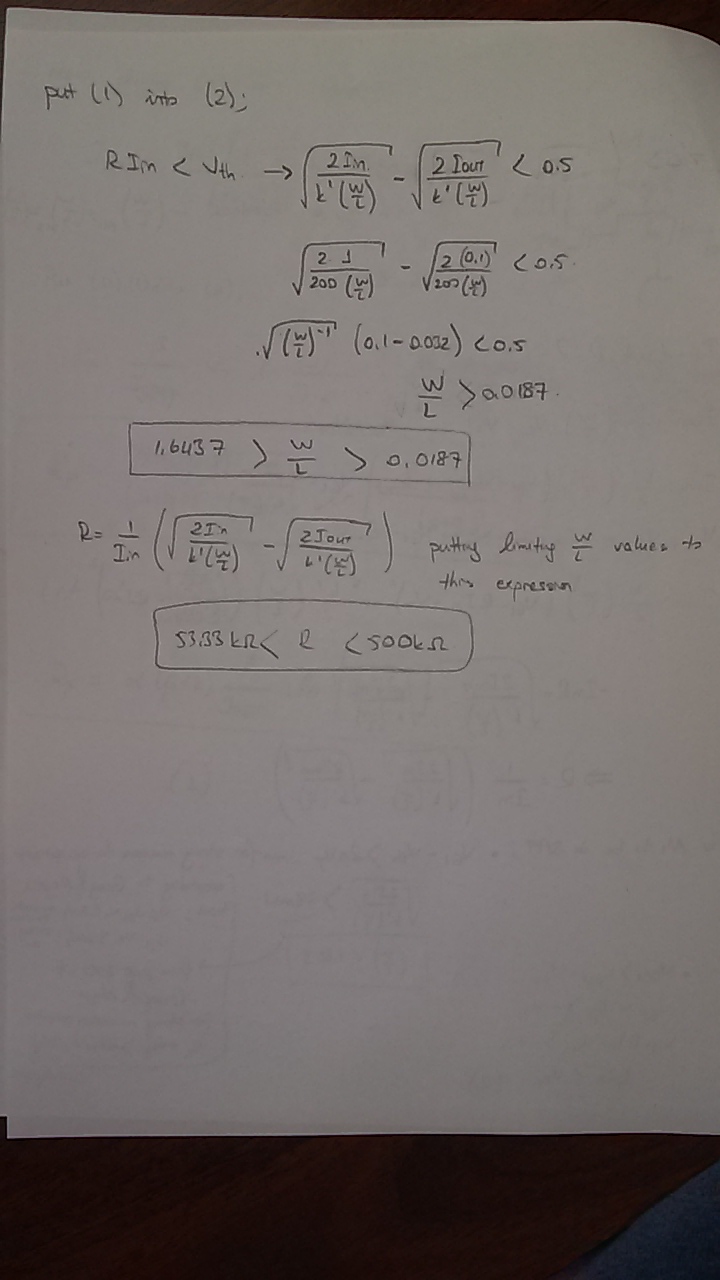 put (1) into (2);
R Iin < Vth. → √(2 Iin / k'(W/L)) - √(2 Iout / k'(W/L)) < 0.5
√(2 1 / 200 (W/L)) - √(2 (0.1) / 200 (W/L)) < 0.5.
√((W/L)^-1) (0.1 - 0.032) < 0.5
W/L > 0.0187.
1.6437 > W/L > 0.0187
R = 1/Iin (√(2 Iin / k'(W/L)) - √(2 Iout / k'(W/L))) putting limiting W/L values to
this expression
53.33 kΩ < R < 500 kΩ